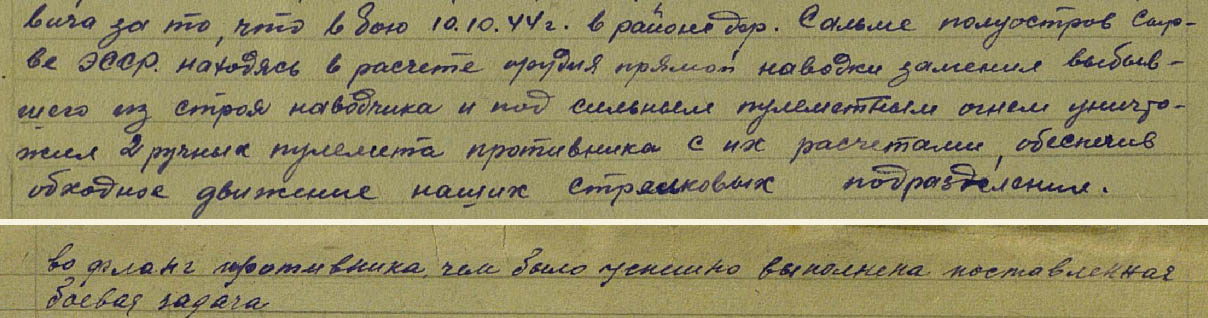 вича за то, что в бою 10.10.44 г. в районе дер. Сальме полуостров Сыр-
ве ЭССР. находясь в расчете орудия прямой наводки заменил выбыв-
шего из строя наводчика и под сильным пулеметным огнем уничто-
жил 2 ручных пулемета противника с их расчетами, обеспечив
обходное движение наших стрелковых подразделений.
во фланг противника, чем было успешно выполнена поставленная
боевая задача